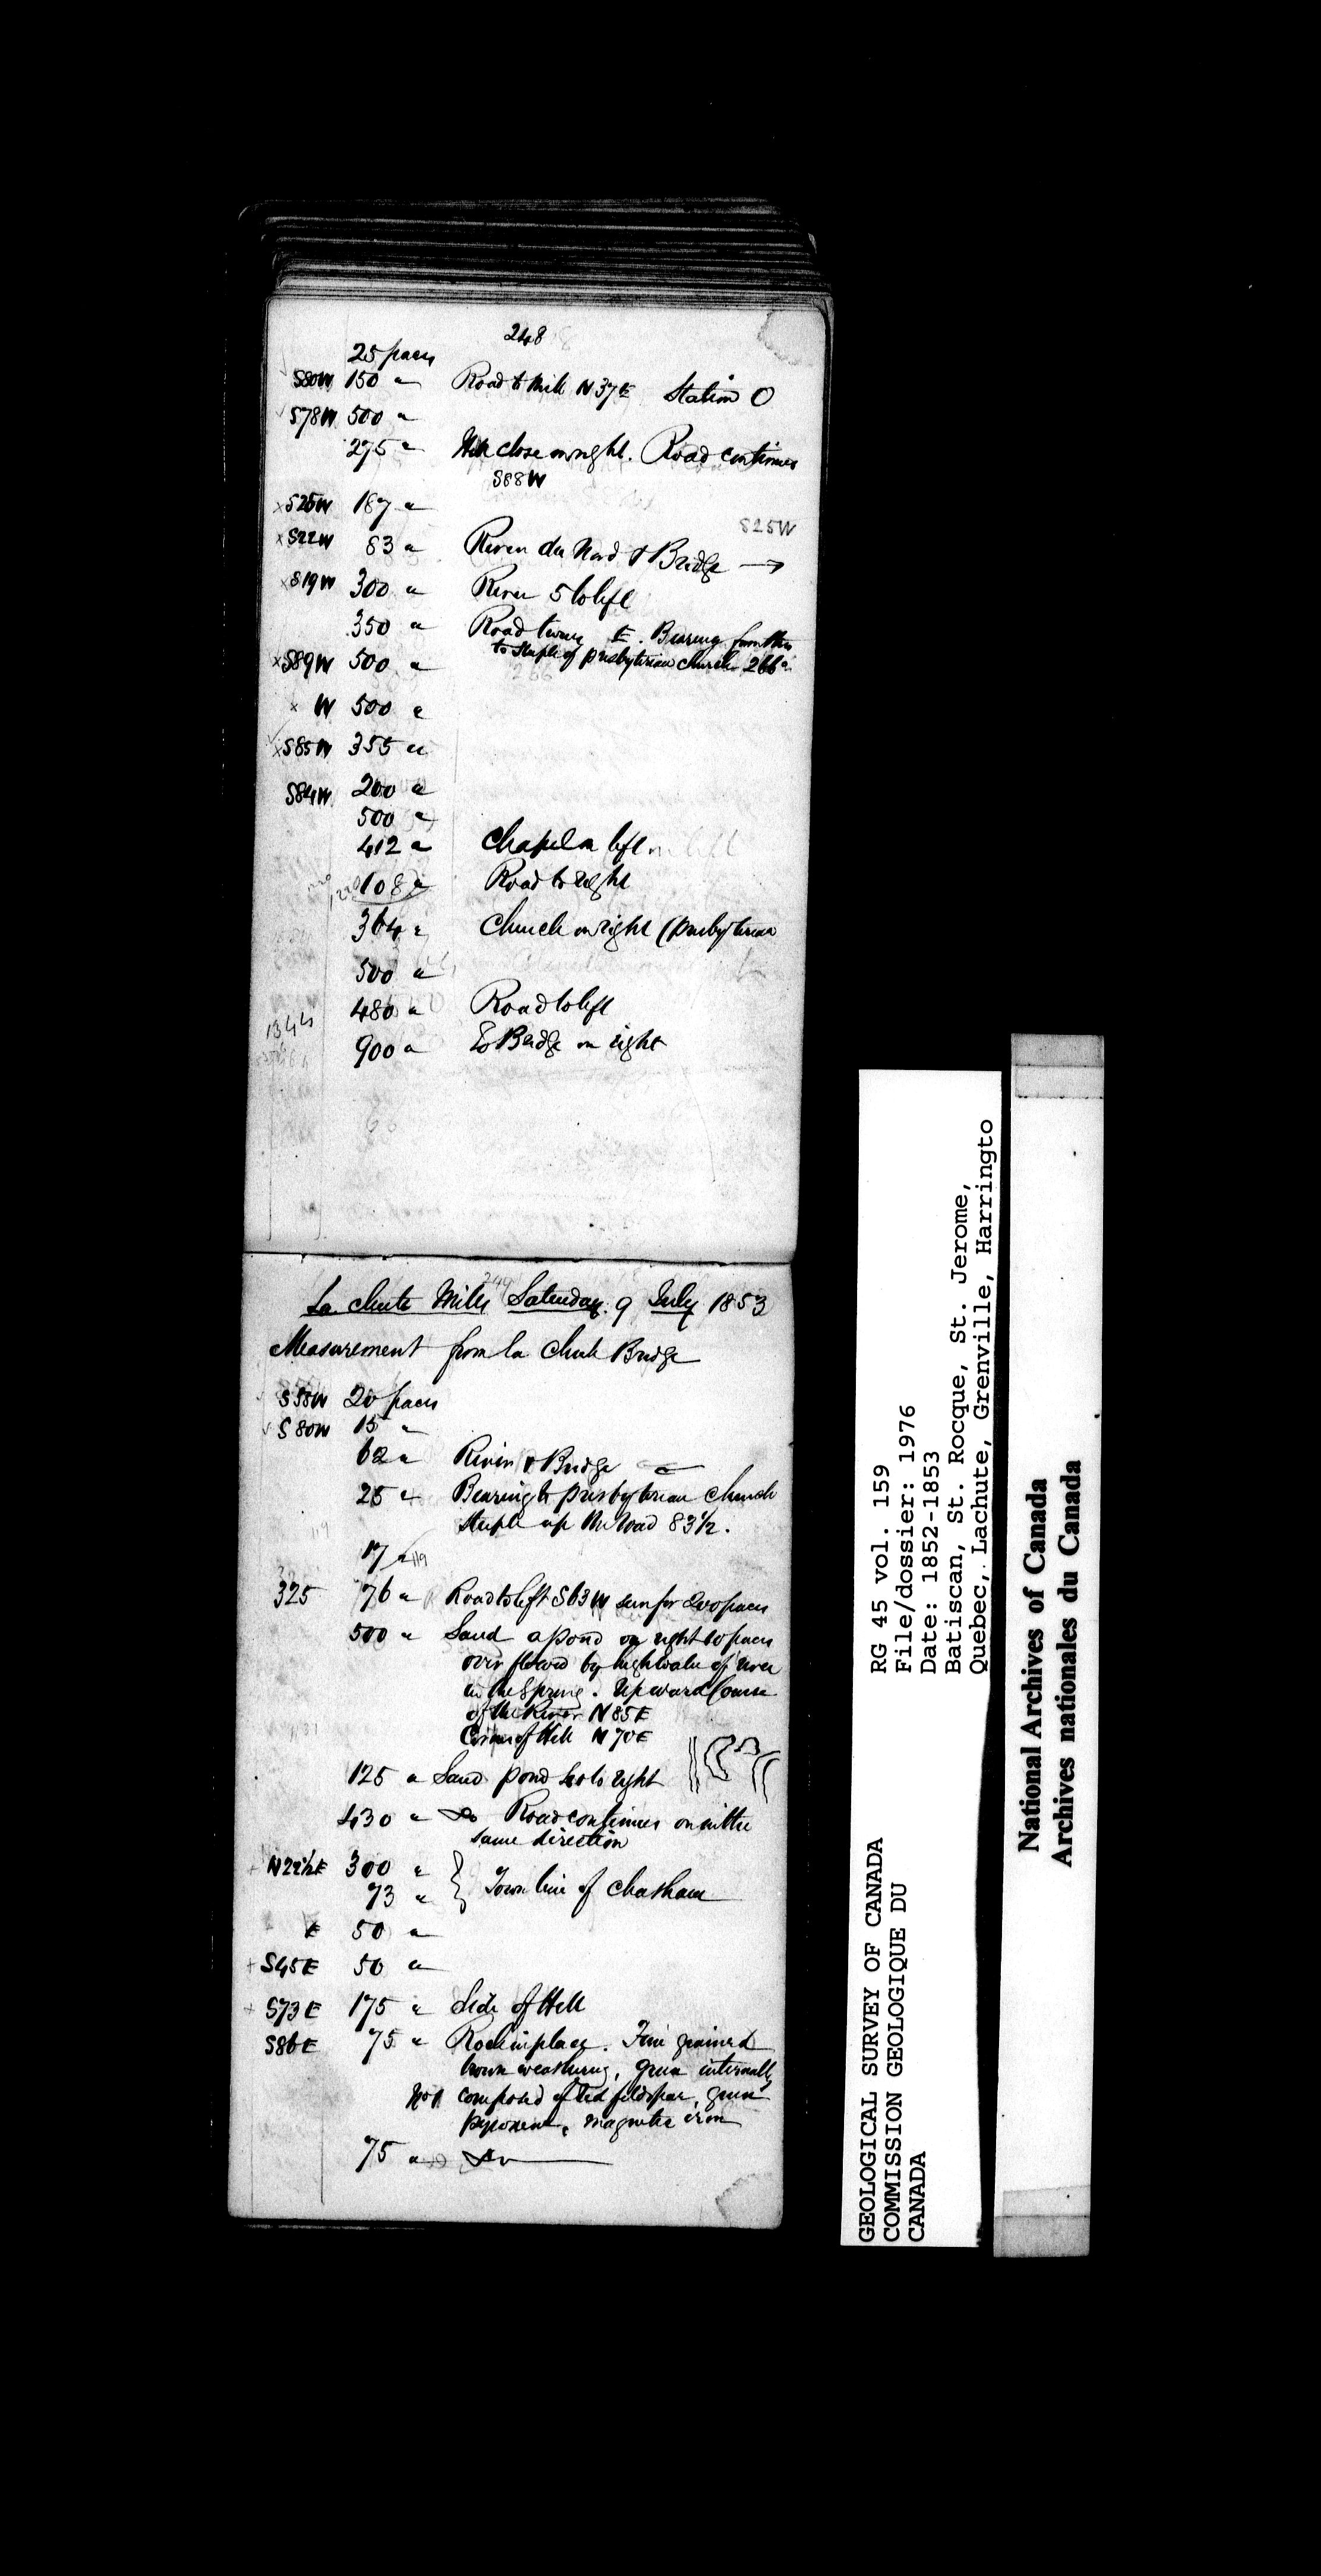 248
25 paces
S80W 150 " Road to Mill N37E Station O
S78W 500 "
275 " Hill close on right. Road continues
S88W
S25W 187 "
S25W
S22W 83 " River du Nord & Bridge →
S19W 300 " River 5 to left
350 " Road turns E. Bearing from this
to steeple of presbyterian church 266°
S89W 500 "
266
W 500 "
S85W 355 "
S84W 200 "
500 "
412 " Chapel on left
108 " Road to right
364 " Church on right (presbyterian
500 "
480 " Road to left
1344
900 " To Bridge on right
249
La Chute Mills Saturday. 9 July 1853
Measurement from La Chute Bridge
S58W 20 paces
S80W 15 "
62 " River & Bridge
25 " Bearing to presbyterian church
steeple up the road 83½.
17 " 119
325 76 " Road to left S63W seen for 200 paces
500 " Sand a pond on right 60 paces
over flowed by high water of river
in the Spring. Upward Course
of the River N85E
Corner of Hill N70E
125 " Sand pond to right
430 " Do Road continues on in the
same direction
N22½E 300 "
73 " } Town line of Chatham
E 50 "
S45E 50 "
S73E 175 " Side of Hill
S86E 75 " Rock in place. Fine grained
brown weathering, green internally
No 1 composed of red feldspar, green
pyroxene, magnetic iron
75 " Do
GEOLOGICAL SURVEY OF CANADA
COMMISSION GEOLOGIQUE DU
CANADA
RG 45 vol. 159
File/dossier: 1976
Date: 1852-1853
Batiscan, St. Rocque, St. Jerome,
Quebec, Lachute, Grenville, Harringto
National Archives of Canada
Archives nationales du Canada